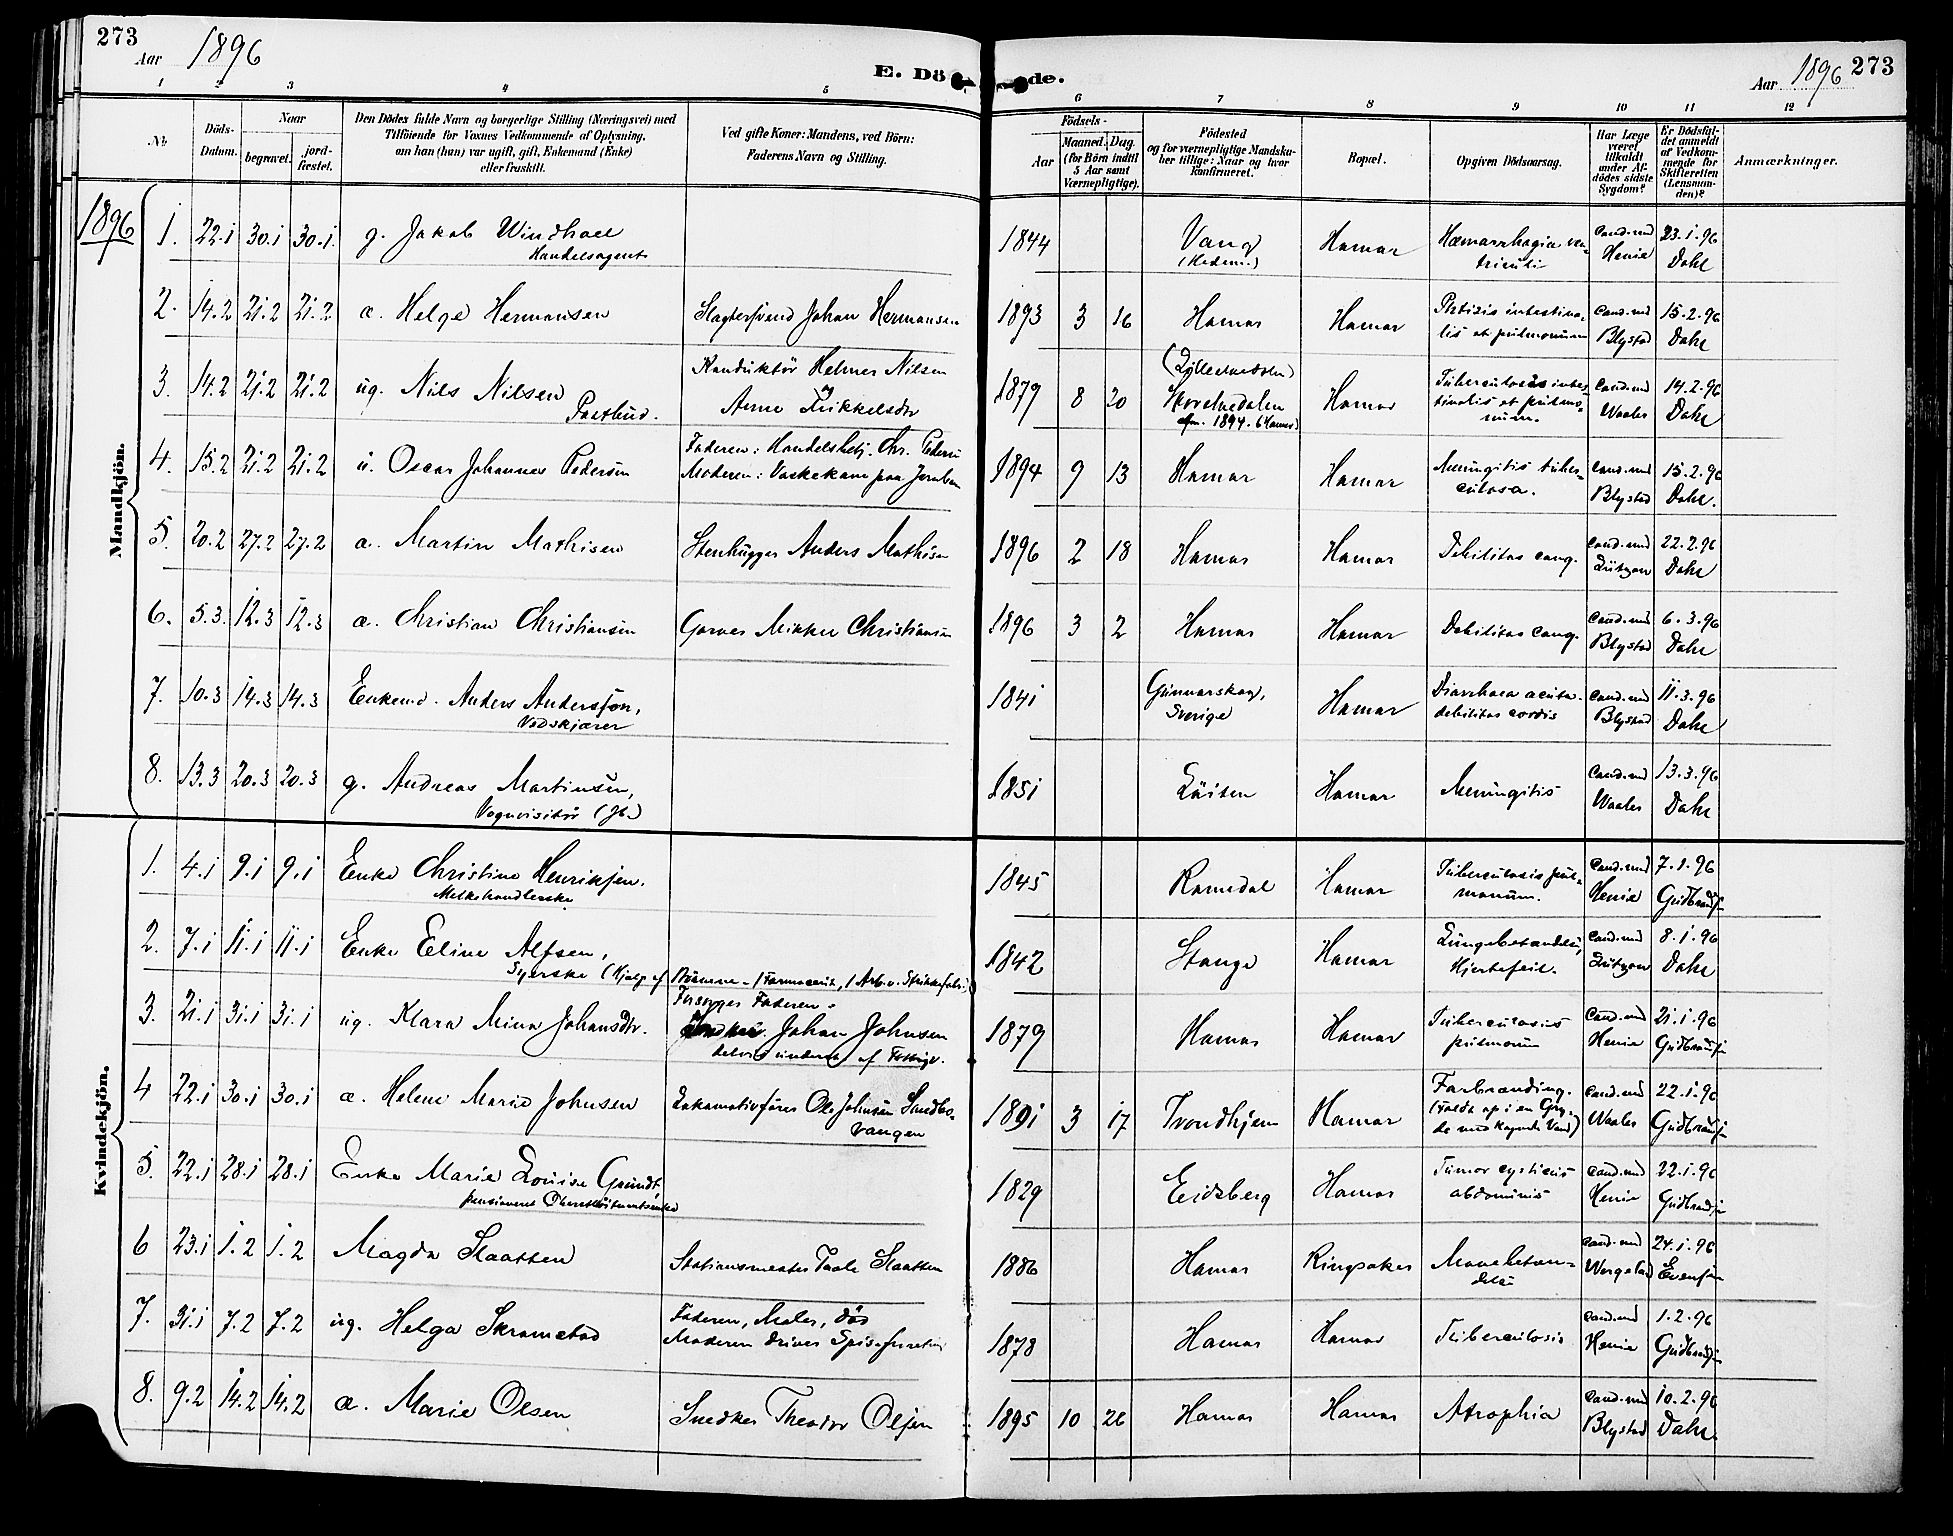 273
Aar 1896
E. Dö
de.
Aar 1896 273
1 2 3 4 5 6 7 8 9 10 11 12
No.
Döds-
Datum.
Naar
begravet.
jord-
fæstet.
Den Dödes fulde Navn og borgerlige Stilling (Næringsvei) med
Tilföiende for Voxnes Vedkommende af Oplysning,
om han (hun) var ugift, gift, Enkemand (Enke)
eller fraskilt.
Ved gifte Koner: Mandens, ved Börn:
Faderens Navn og Stilling.
Födsels-
Aar
Maaned. Dag.
(for Börn indtil
5 Aar samt
Værnepligtige).
Födested
og for værnepligtige Mandska-
ber tillige: Naar og hvor
konfirmeret.
Bopæl.
Opgiven Dödsaarsag.
Har Læge
været
tilkaldt
under Af-
dödes sidste
Sygdom?
Er Dödsfal-
det anmeldt
af Vedkom-
mende for
Skifteretten
(Lensman-
den)?
Anmærkninger.
1896
Mandkjön.
1. 22.1 30.1 30.1. g. Jakob Windhall 1844 Vang Hamar Hæmorrhagia ven- Cand.med 23.1.96
Handelsagent (Hedem.) triculi Henie Dahl
2. 14.2 21.2 21.2 a. Helge Hermansen Slagtersvend Johan Hermansen 1893 3 16 Hamar Hamar Phtisis intestina- Cand.med 15.2.96
lis et pulmonum Blystad Dahl
3. 14.2 21.2 21.2 ug. Nils Nilsen Konduktör Helmer Nilsen 1879 8 20 Hamar Tuberculosis intes- Cand.med 14.2.96
Postbud. Anne Mikkelsdtr 1894 Hamar) tinalis et pulmo- Waaler Dahl
num.
4. 15.2 21.2 21.2 u. Oscar Johannes Pedersen Faderen: Handelsbetj. Chr. Pedersen 1894 9 13 Hamar Hamar Meningitis tuber- Cand.med 15.2.96
Moderen: Vaskekone paa Jernban culosa. Blystad Dahl.
5. 20.2 27.2 27.2 a. Martin Mathisen Stenhugger Anders Mathisen 1896 2 18 Hamar Hamar Debilitas cong. Cand.med 22.2.96
Lützow Dahl
6. 5.3. 12.3 12.3 a. Christian Christiansen Garver Mikkel Christiansen 1896 3 2 Hamar Hamar Debilitas cong. Cand.med 6.3.96
Blystad Dahl
7. 10.3 14.3 14.3 Enkemd. Anders Andersson, 1841 Gunnarskog, Hamar Diarrhoea acuta. Cand.med 11.3.96
Vedskjærer Sverige debilitas cordis Blystad Dahl
8. 13.3 20.3 20.3 g. Andreas Martinsen, 1851 Löiten Hamar Meningitis Cand.med 13.3.96
Vognvisitör (Jb.) Waaler Dahl
Kvindekjön.
1. 4.1 9.1 9.1 Enke Christine Henriksen. 1845 Romedal Hamar Tuberculosis pul- Cand.med 7.1.96
Melkehandlerske monum. Henie Gudbrands
2. 7.1 11.1 11.1 Enke Eline Alfsen, 1842 Stange Hamar Lungebetændelse, Cand.med 8.1.96
Syerske (Hjælp af Börnene - 1 Farmaceut, 1 Arb. v. Strikkefabr.) Hjertefeil. Lützow Dahl
3. 21.1 31.1 31.1 ug. Klara Mina Johansdtr. Forsörges Faderen - 1879 Hamar Hamar Tuberculosis Cand.med 21.1.96
Johan Johnsen pulmonum Henie Gudbrands
delvis underst. af Fattigv.
4 22.1 30.1 30.1 a. Helene Marie Johnsen Lokomotivförer Ole Johnsen 1891 3 17 Trondhjem Hamar Forbrænding. Cand.med 22.1.96
vangen (Faldt op i en Gry- Waaler Gudbrands
de med kogende Vand)
5. 22.1 28.1 28.1 Enke Marie Louise Grundt 1829 Eidsberg Hamar Tumor cysticus Cand.med 22.1.96
pensioneret Oberstlöitnantsenke abdominis Henie Gudbrands
6 23.1 1.2 1.2 Magda Slaatten Stationsmester Slaatten 1886 Hamar Ringsaker Mavebetæn- Cand.med 24.1.96
delse Wergeland Evensen
7. 31.1 7.2 7.2 ug. Helga Skramstad Faderen, Maler, död 1878 Hamar Hamar Tuberculosis Cand.med 1.2.96
Moderen driver Spiseforretning Henie Gudbrands
8. 9.2 14.2 14.2 a. Marie Olsen Snedker Theodor Olsen 1895 10 26 Hamar Hamar Atrophia Cand.med 10.2.96
Blystad Dahl.